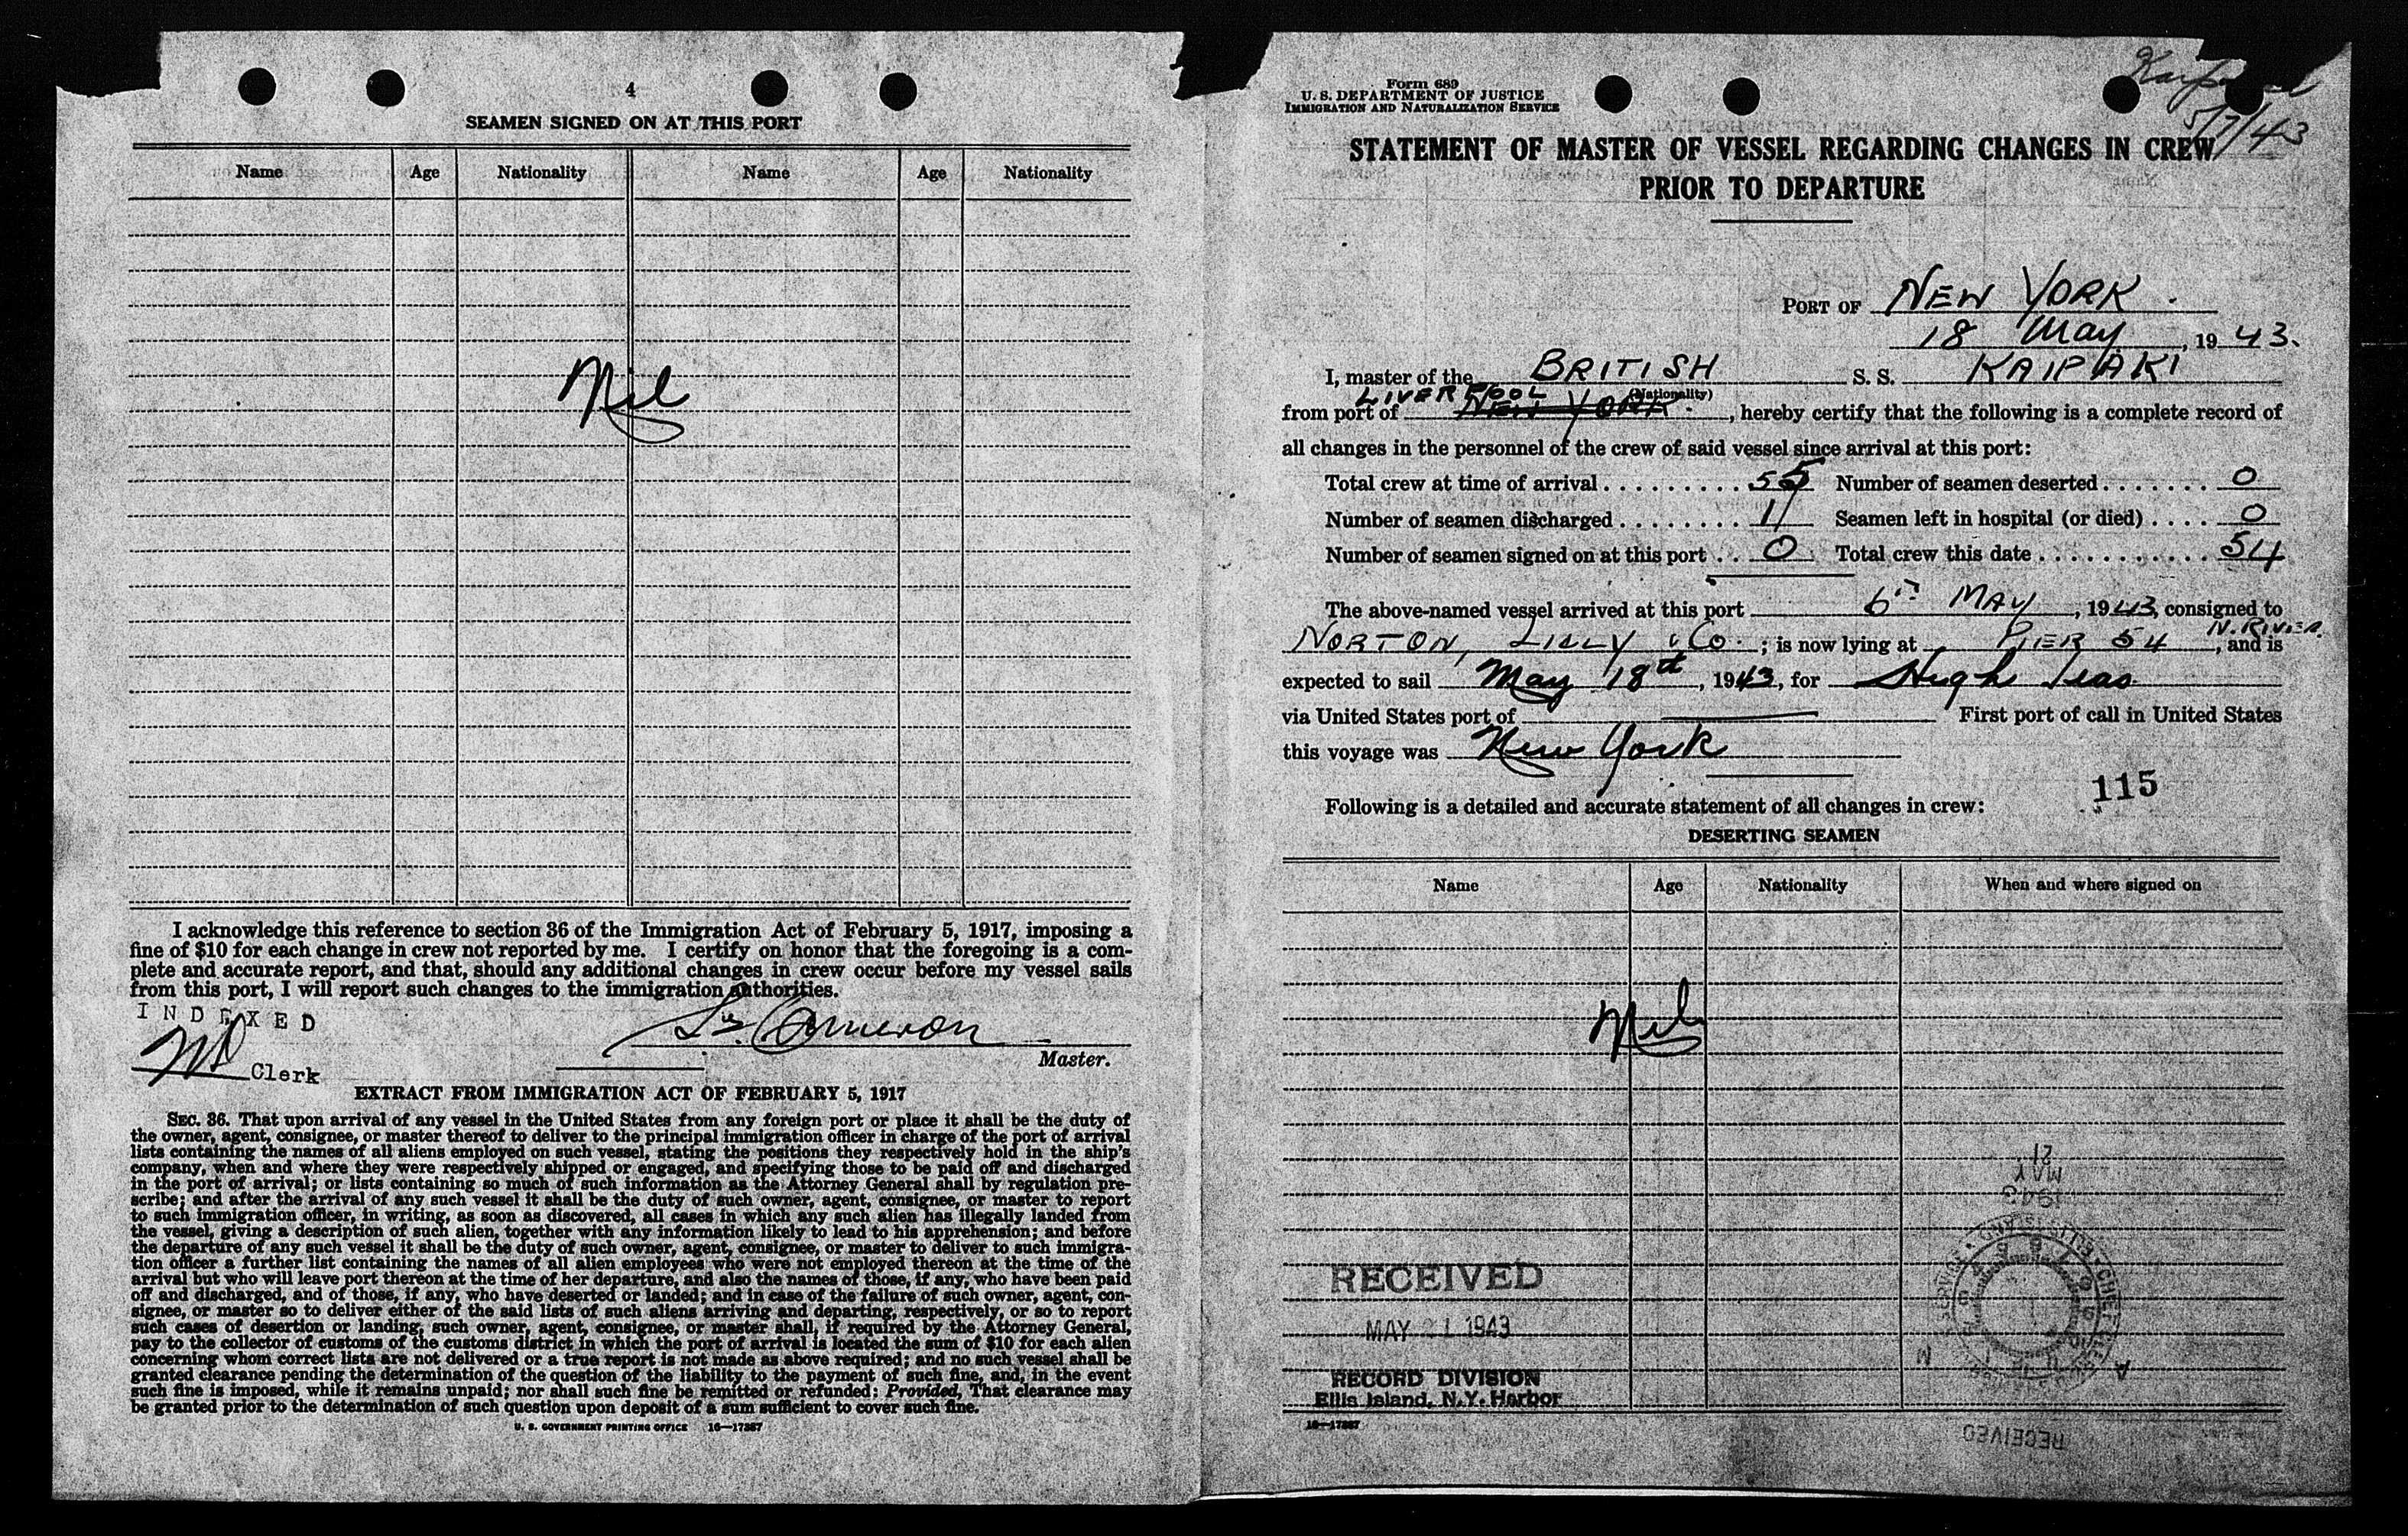 4
SEAMEN SIGNED ON AT THIS PORT
Name Age Nationality Name Age Nationality
Nil
I acknowledge this reference to section 36 of the Immigration Act of February 5, 1917, imposing a
fine of $10 for each change in crew not reported by me. I certify on honor that the foregoing is a com-
plete and accurate report, and that, should any additional changes in crew occur before my vessel sails
from this port, I will report such changes to the immigration authorities.
INDEXED
Cameron
Master.
Clerk
EXTRACT FROM IMMIGRATION ACT OF FEBRUARY 5, 1917
SEC. 36. That upon arrival of any vessel in the United States from any foreign port or place it shall be the duty of
the owner, agent, consignee, or master thereof to deliver to the principal immigration officer in charge of the port of arrival
lists containing the names of all aliens employed on such vessel, stating the positions they respectively hold in the ship's
company, when and where they were respectively shipped or engaged, and specifying those to be paid off and discharged
in the port of arrival; or lists containing so much of such information as the Attorney General shall by regulation pre-
scribe; and after the arrival of any such vessel it shall be the duty of such owner, agent, consignee, or master to report
to such immigration officer, in writing, as soon as discovered, all cases in which any such alien has illegally landed from
the vessel, giving a description of such alien, together with any information likely to lead to his apprehension; and before
the departure of any such vessel it shall be the duty of such owner, agent, consignee, or master to deliver to such immigra-
tion officer a further list containing the names of all alien employees who were not employed thereon at the time of the
arrival but who will leave port thereon at the time of her departure, and also the names of those, if any, who have been paid
off and discharged, and of those, if any, who have deserted or landed; and in case of the failure of such owner, agent, con-
signee, or master so to deliver either of the said lists of such aliens arriving and departing, respectively, or so to report
such cases of desertion or landing, such owner, agent, consignee, or master shall, if required by the Attorney General,
pay to the collector of customs of the customs district in which the port of arrival is located the sum of $10 for each alien
concerning whom correct lists are not delivered or a true report is not made as above required; and no such vessel shall be
granted clearance pending the determination of the question of the liability to the payment of such fine, and, in the event
such fine is imposed, while it remains unpaid; nor shall such fine be remitted or refunded: Provided, That clearance may
be granted prior to the determination of such question upon deposit of a sum sufficient to cover such fine.
U. S. GOVERNMENT PRINTING OFFICE 16—17367
Form 689
U. S. DEPARTMENT OF JUSTICE
IMMIGRATION AND NATURALIZATION SERVICE
5/7/43
STATEMENT OF MASTER OF VESSEL REGARDING CHANGES IN CREW
PRIOR TO DEPARTURE
PORT OF NEW YORK.
18 May, 1943.
I, master of the BRITISH S. S. KAIPAKI
(Nationality)
LIVERPOOL
from port of NEW YORK., hereby certify that the following is a complete record of
all changes in the personnel of the crew of said vessel since arrival at this port:
Total crew at time of arrival . . . . . . . . . . 55 Number of seamen deserted . . . . . . . 0
Number of seamen discharged . . . . . . . . 1 Seamen left in hospital (or died) . . . . 0
Number of seamen signed on at this port . . 0 Total crew this date . . . . . . . . . . . 54
The above-named vessel arrived at this port 6th MAY, 1943, consigned to
NORTON, LILLY & Co.; is now lying at PIER 54 N. RIVER., and is
expected to sail May 18th, 1943, for High Seas
via United States port of First port of call in United States
this voyage was New York
115
Following is a detailed and accurate statement of all changes in crew:
DESERTING SEAMEN
Name Age Nationality When and where signed on
Nil
21
MAY
1943
RECEIVED
MAY 21 1943
RECORD DIVISION
Ellis Island, N.Y. Harbor
16—17367
RECEIVED